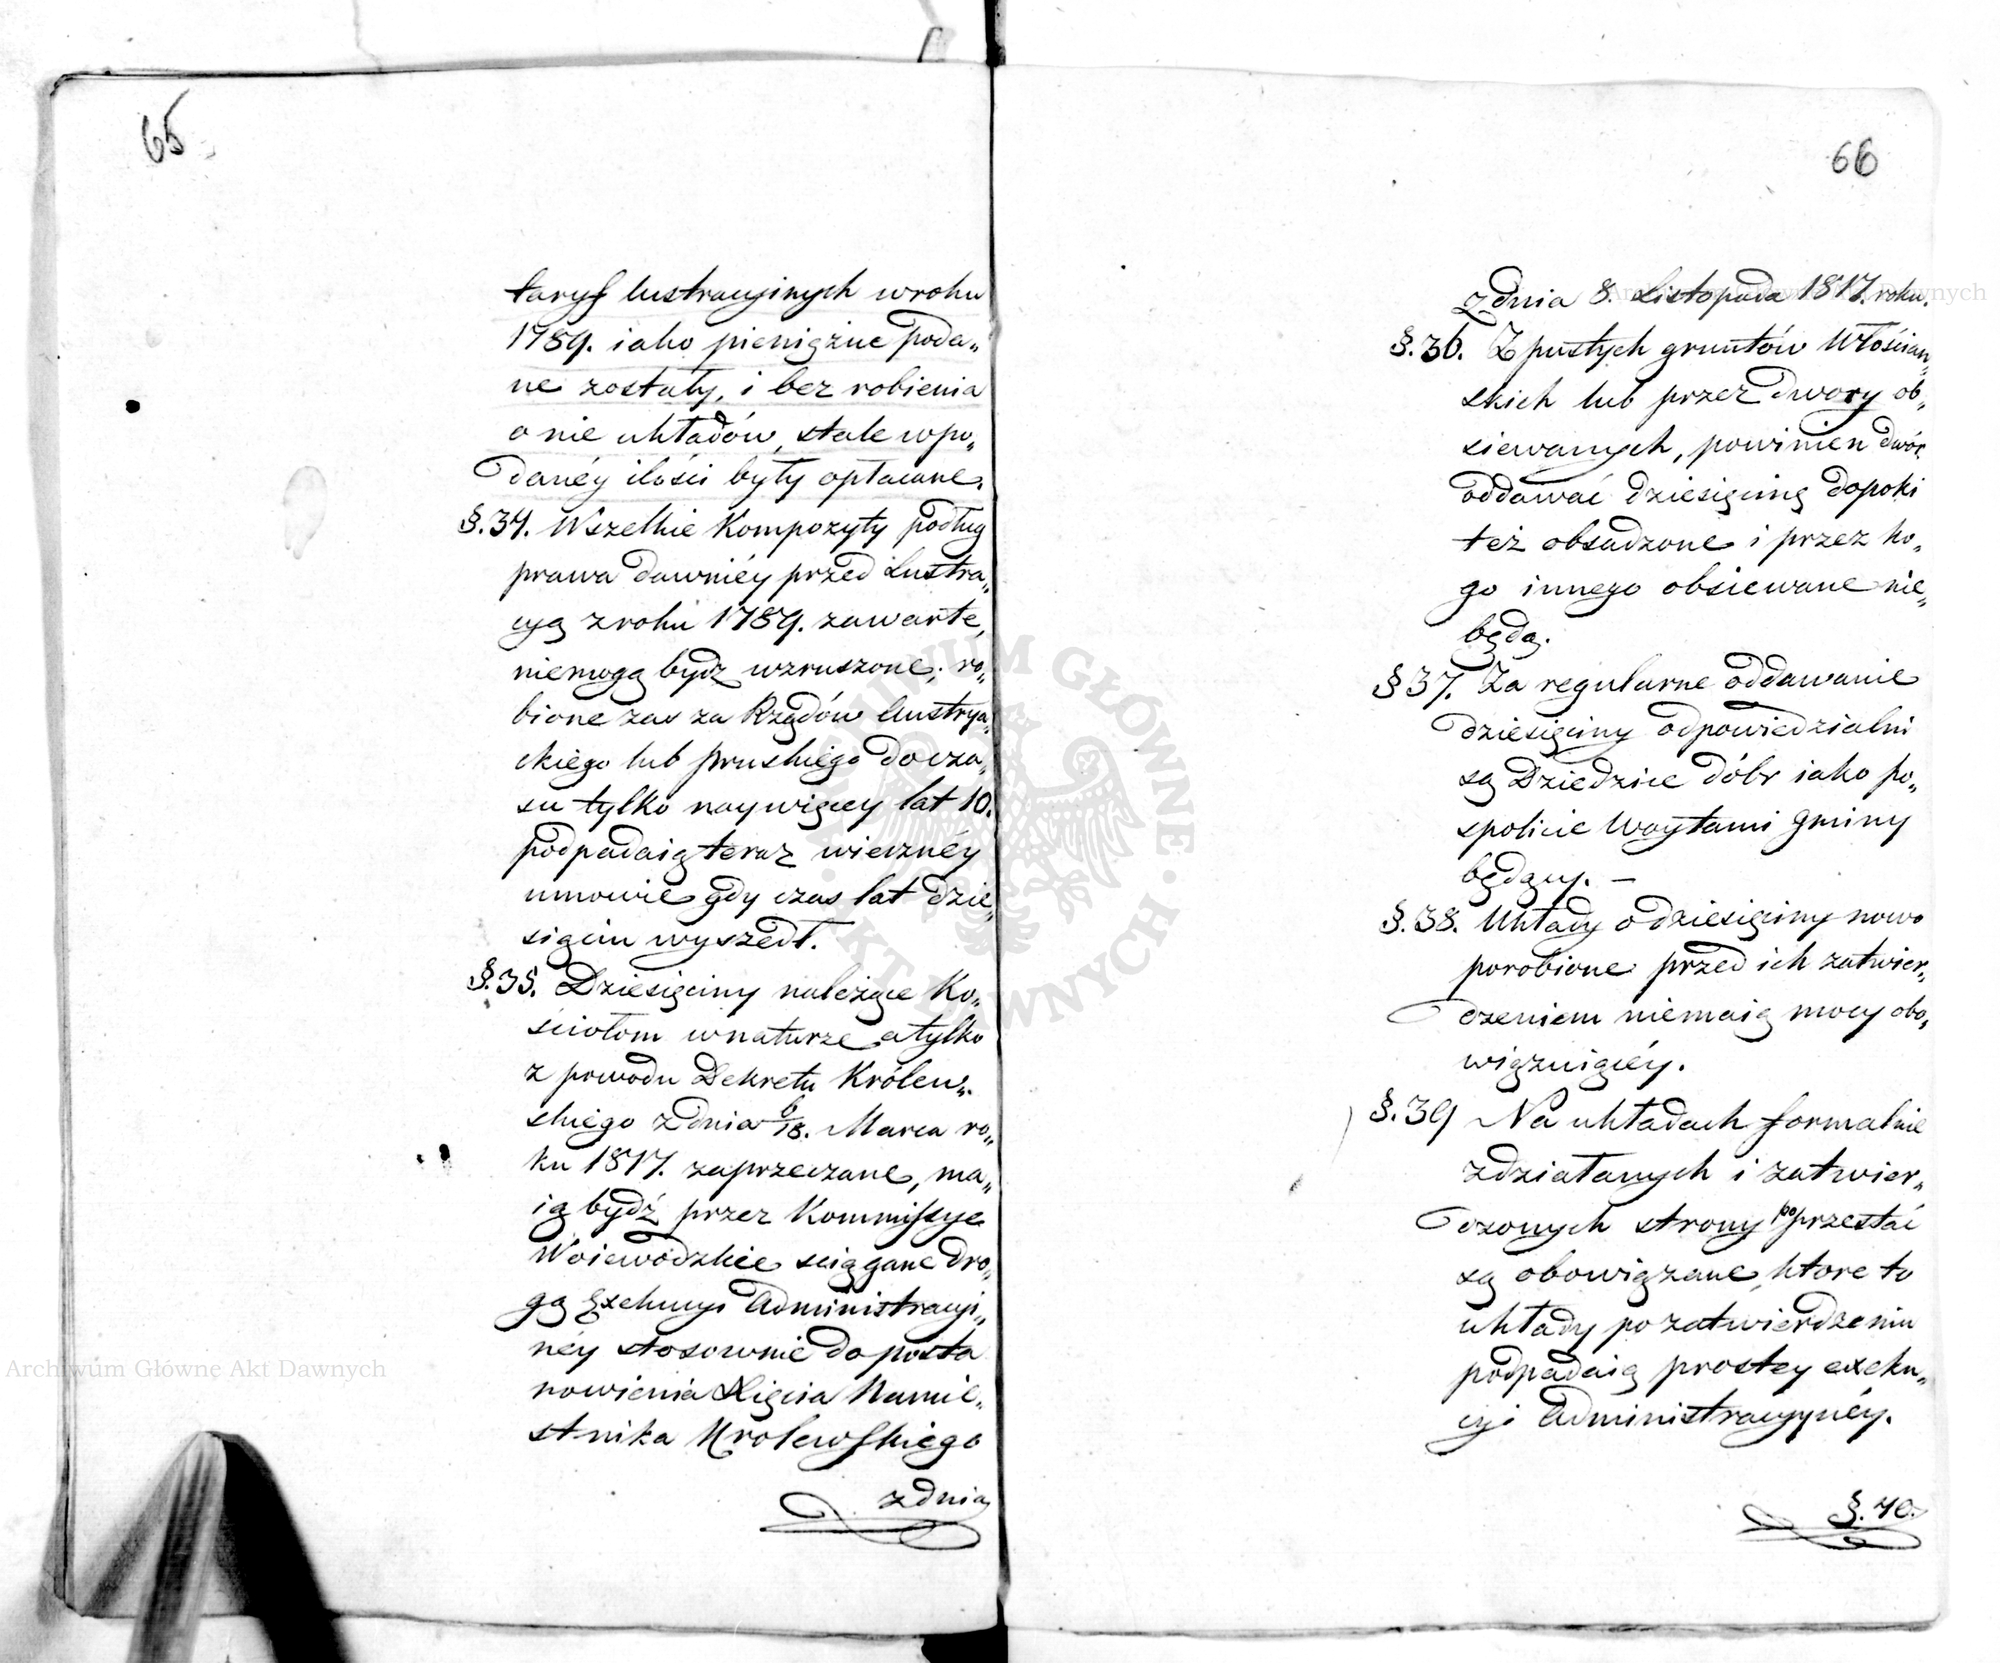 65
taryf lustracyinych w roku
1789. iako pieniężne poda„
ne zostały, i bez robienia
o nie układów, stale w po„
daney ilości były opłacane.
§. 34. Wszelkie Kompozyty podług
prawa dawniéy przed Lustra„
cyą z roku 1789. zawarte,
niemogą bydz wzruszone; ro„
bione zas za Rządów Austrya„
ckiego lub pruskiego do cza„
su tylko naywięcey lat 10.
podpadaią teraz wieczney
umowie gdy czas lat dzie„
sięciu wyszedł.
§. 35. Dziesięciny należące Ko„
ściołom w naturze a tylko
z powodu Dekretu Królew„
skiego z dnia 6/18. Marca ro„
ku 1817. zaprzeczane, ma„
ią bydź przez Kommissye
Woiewodzkie sciągane dro„
gą Exekucyi Administracyi„
néy stosownie do posta
nowienia Xięcia Namie„
stnika Krolewskiego
z dnia
66
z dnia 8. Listopada 1817. roku.
§. 36. Z pustych gruntów Włościań„
skich lub przez dwory ob„
siewanych, powinien dwór
oddawać dziesięcinę dopoki
też obsadzone i przez ko„
go innego obsiewane nie„
będą.
§ 37. Za regularne oddawanie
dziesięciny odpowiedzialni
są Dziedzice dóbr iako po„
spolicie Woytami Gminy
będący. —
§. 38. Układy o dziesięciny nowo
porobione przed ich zatwier„
dzeniem niemaią mocy obo„
wiązuiącéy.
§. 39 Na układach formalnie
zdziałanych i zatwier„
dzonych strony poprzestać
są obowiązane, ktore to
układy po zatwierdzeniu
podpadaią prostey exeku„
cyi Administracyynéy.
§. 40.
Archiwum Główne Akt Dawnych
Archiwum Główne Akt Dawnych
ARCHIWUM GŁÓWNE · AKT DAWNYCH ·